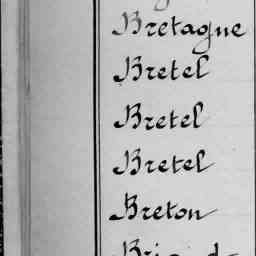 Bretagne
Bretel
Bretel
Bretel
Breton